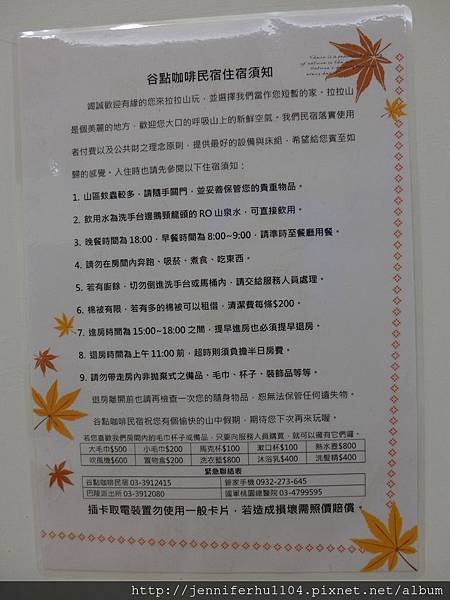 谷點咖啡民宿住宿須知
竭誠歡迎有緣的您來拉拉山玩，並選擇我們當作您短暫的家。拉拉山
是個美麗的地方，歡迎您大口的呼吸山上的新鮮空氣。我們民宿落實使用
者付費以及公共財之理念原則，提供最好的設備與床組，希望給您賓至如
歸的感覺。入住時也請先參閱以下住宿須知：
1. 山區蚊蟲較多，請隨手關門，並妥善保管您的貴重物品。
2. 飲用水為洗手台邊鵝頸龍頭的 RO 山泉水，可直接飲用。
3. 晚餐時間為 18:00，早餐時間為 8:00~9:00，請準時至餐廳用餐。
4. 請勿在房間內奔跑、吸菸、煮食、吃東西。
5. 若有廚餘，切勿倒進洗手台或馬桶內，請交給服務人員處理。
6. 棉被有限，若有多的棉被可以租借，清潔費每條$200。
7. 進房時間為 15:00~18:00 之間，提早進房也必須提早退房。
8. 退房時間為上午 11:00 前，超時則須負擔半日房費。
9. 請勿帶走房內非拋棄式之備品、毛巾、杯子、裝飾品等等。
退房離開前也請再檢查一次您的隨身物品，恕無法保管任何遺失物。
谷點咖啡民宿祝您有個愉快的山中假期，期待您下次再來玩喔。
若您喜歡我們房間內的毛巾杯子或備品，只要向服務人員購買，就可以擁有它們喔。
大毛巾$500 小毛巾$200 馬克杯$100 漱口杯$100 熱水壺$800
吹風機$600 置物盒$200 洗衣籃$800 沐浴乳$400 洗髮精$400
緊急聯絡表
谷點咖啡民宿 03-3912415 管家手機 0932-273-645
巴陵派出所 03-3912080 國軍桃園總醫院 03-4799595
插卡取電裝置勿使用一般卡片，若造成損壞需照價賠償。
http://jenniferhu1104.pixnet.net/album